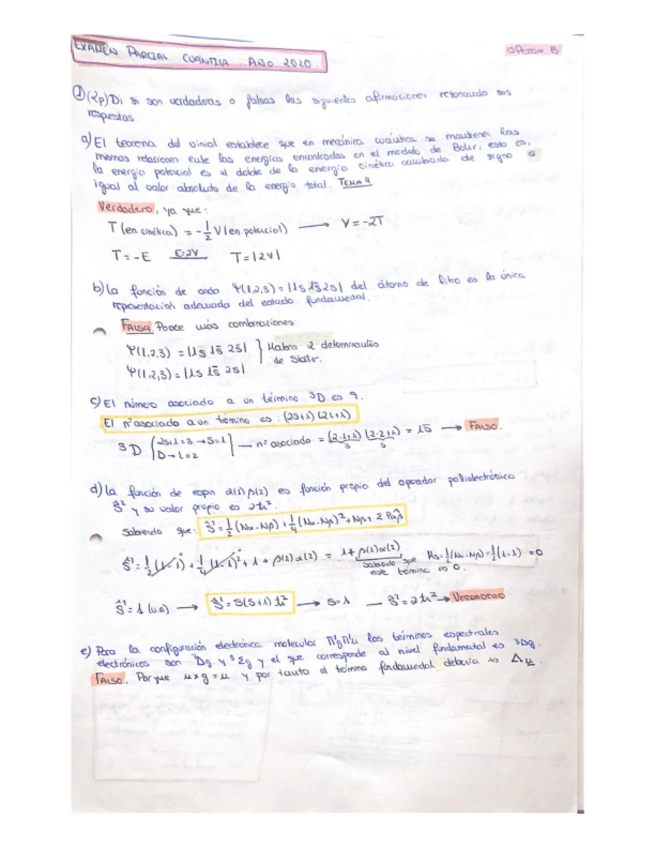 EXAMEN PARCIAL CUÁNTICA AÑO 2020.
OPCIÓN B
① (2p) Di si son verdaderas o falsas las siguientes afirmaciones razonando sus
respuestas.
a) El teorema del virial establece que en mecánica cuántica se mantienen las
mismas relaciones entre las energías encontradas en el modelo de Bohr, esto es,
la energía potencial es el doble de la energía cinética cambiada de signo e
igual al valor absoluto de la energía total. TEMA 4
Verdadero, ya que:
T (en cinética) = -1/2 V (en potencial) ⟶ V = -2T
T = -E E=2V T = |2V|
b) La función de onda Ψ(1,2,3) = |1s 1s̄ 2s| del átomo de litio es la única
representación adecuada del estado fundamental.
FALSA Posee más combinaciones
Ψ(1,2,3) = |1s 1s̄ 2s| } Habrá 2 determinantes
Ψ(1,2,3) = |1s 1s̄ 2s| de Slater.
c) El número asociado a un término ³D es 9.
El nº asociado a un término es: (2S+1)(2L+1)
³D [2S+1=3 → S=1 D→L=2] — nº asociado = (2·1+1)(2·2+1) = 15 ⟶ FALSO.
3 5
d) La función de espín α(1)β(2) es función propia del operador polielectrónico
Ŝ² y su valor propio es 2ħ².
Sabiendo que: Ŝ² = 1/2 (Nα-Nβ) + 1/4 (Nα-Nβ)² + Nβ + Σ P̂αβ
Ŝ² = 1/2 (1-1) + 1/4 (1-1)² + 1 + β(1)α(2) = 1 + β(1)α(2) Ms = 1/2 (Nα-Nβ) = 1/2 (1-1) = 0
sabiendo que
este término es 0.
Ŝ² = 1 (u.a) ⟶ Ŝ² = S(S+1)ħ² ⟶ S=1 — Ŝ² = 2ħ² → VERDADERO
e) Para la configuración electrónica molecular Π¹g Π¹u los términos espectrales
electrónicos son ¹Dg y ³Σg y el que corresponde al nivel fundamental es ³Dg.
FALSO. Porque u × g = u y por tanto el término fundamental debería ser Δu.